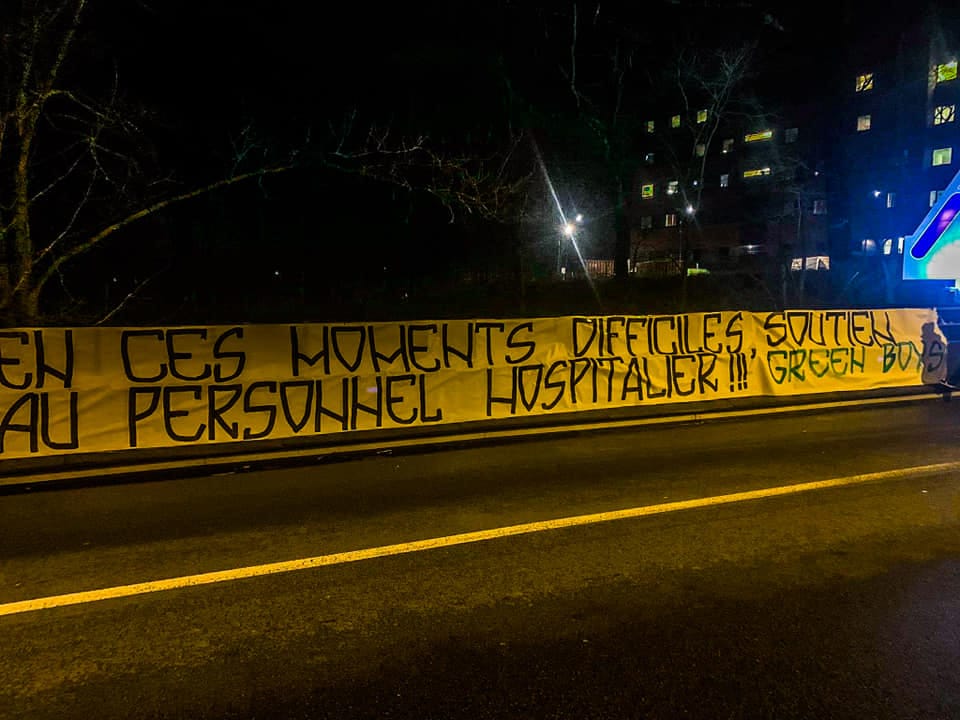 EN CES MOMENTS DIFFICILES, SOUTIEN
AU PERSONNEL HOSPITALIER !!! GREEN BOYS